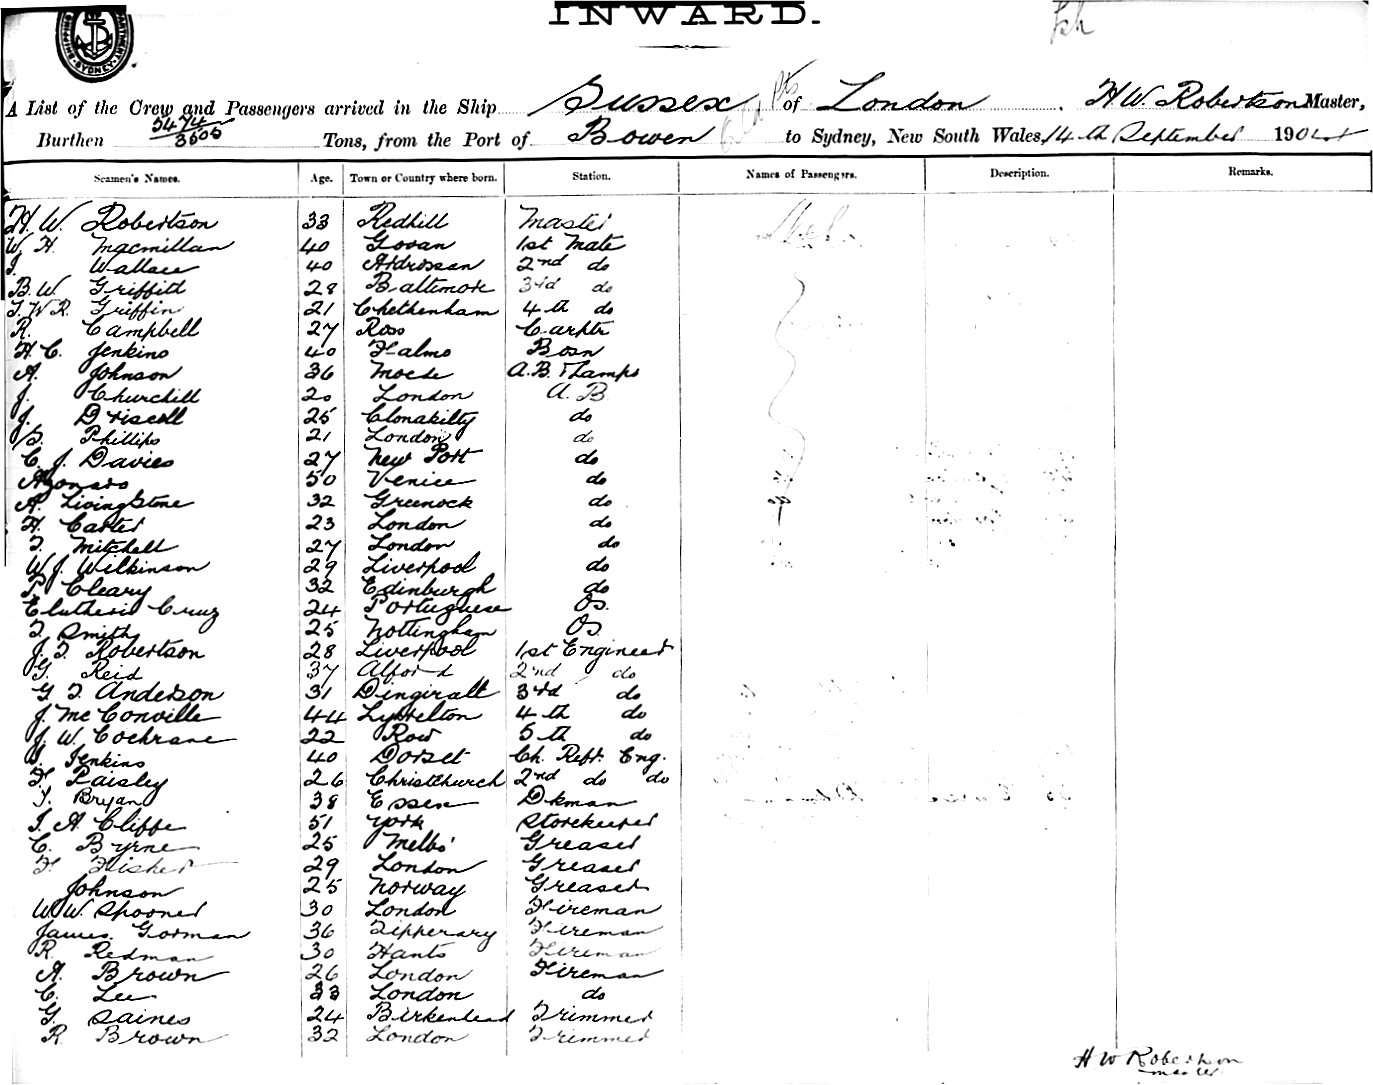 INWARD.
SHIPPING DEPARTMENT SYDNEY
A List of the Crew and Passengers arrived in the Ship Sussex of London. H W. Robertson Master,
Burthen 5474/3505 Tons, from the Port of Bowen to Sydney, New South Wales, 14th September 190
Seamen's Names. Age. Town or Country where born. Station. Names of Passengers. Description. Remarks.
H. W. Robertson 33 Redhill Master
W. H. Macmillan 40 Govan 1st Mate
Wallace 40 Ardrossan 2nd do
B. W. Griffith 28 Baltimore 3rd do
T. W. R. Griffin 21 Cheltenham 4th do
R. Campbell 27 Ross Carptr
H. C. Jenkins 40 Falmo Bosn
A. Johnson 36 A.B. & Lamps
J. Churchill 20 London A.B
J. Driscoll 25 Clonakilty do
S. Phillips 21 London do
C. J. Davies 27 New Port do
50 Venice do
A. Livingstone 32 Greenock do
H. Carter 23 London do
T. Mitchell 27 London do
W. J. Wilkinson 29 Liverpool do
P. Cleary 32 Edinburgh do
Cruz 24 Portuguese Os.
T. Smith 25 Nottingham Os.
J. T. Robertson 28 Liverpool 1st Engineer
G. Reid 37 Alford 2nd do
G T. Anderson 31 Dingiralt 3rd do
J. McConville 44 Lyttelton 4th do
J. W. Cochrane 22 Row 5th do
Jenkins 40 Dorset Ch. Refr. Eng.
F. Paisley 26 Christchurch 2nd do do
T. Bryan 38 Essex Dkman
T. A. Cliffe 51 York Storekeeper
C. Byrne 25 Melbo' Greaser
F. Fisher 29 London Greaser
Johnson 25 Norway Greaser
W. W. Spooner 30 London Fireman
James Gorman 36 Tipperary Fireman
R. Redman 30 Hants Fireman
A. Brown 26 London Fireman
C. Lee 33 London do
G. Saines 24 Birkenhead Trimmer
R. Brown 32 London Trimmer
H W Robertson
master